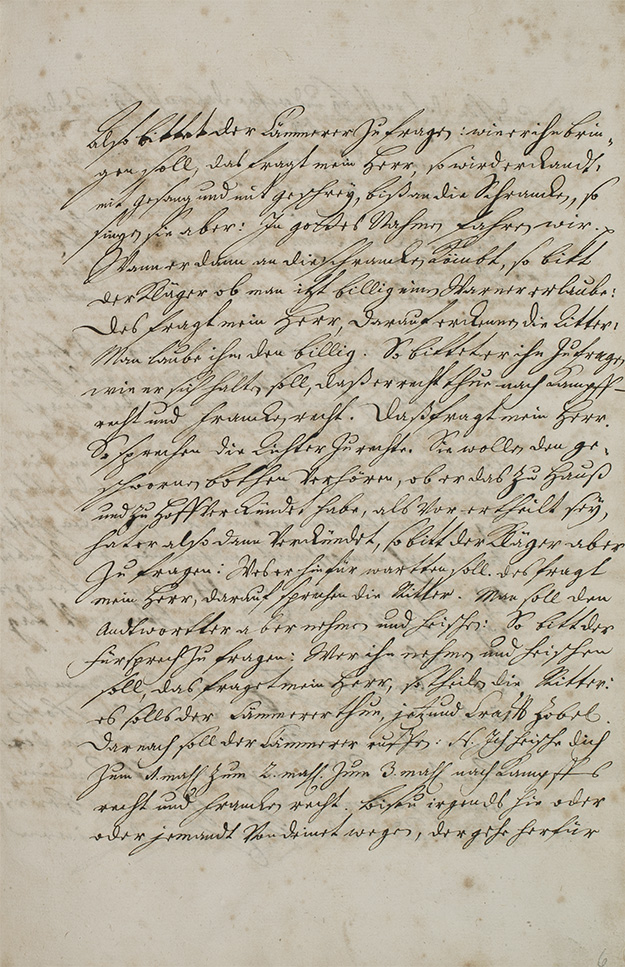 Also bittet der Cammerer zu fragen: wie er ihn brin-
gen soll, das fragt mein Herr, so wird erkandt,
mit gesang und mit geschrey, biß an die Schrancken, so
singen sie aber: In gottes Nahmen fahren wir.
Wann er dann an die schrancken kömbt, so bitt
der Kläger ob man ihm billig einen Warner erlaube:
Des fragt mein Herr, darauf erkennen die Ritter:
Man laube ihm den billig. So bittet er ihn zu fragen
wie er sich halten soll, daß er recht thue nach Kampff-
recht und francken recht. Das fragt mein Herr.
So sprechen die Richter zu rechte. Sie wollen den ge-
schwornen bothen Verhören, ob er das zu Hauß
und zu Hoff Verkündet habe, als Vor ertheilt sey,
hat er also dann Verkündet, so bitt der Kläger aber
zu fragen: Wes er hinfür warten soll. des fragt
mein Herr, darauf sprechen die Ritter. Man soll den
Andtwortter aber nehmen und heischen: So bitt der
fürsprech zu fragen: Wer ihn nehmen und heischen
soll, das fraget mein Herr, so theilen die Ritter:
es solls der Cammerer thun, jetzund Cratzft Zobel.
Darnach soll der Cammerer ruffen: N. Ich heische dich
Zum 1. mahl Zum 2. mahl. Zum 3. mahl nach Kampffs
recht und francken recht. bistu irgends hie oder
oder jemandt Von deinet wegen, der gehe herfür
6